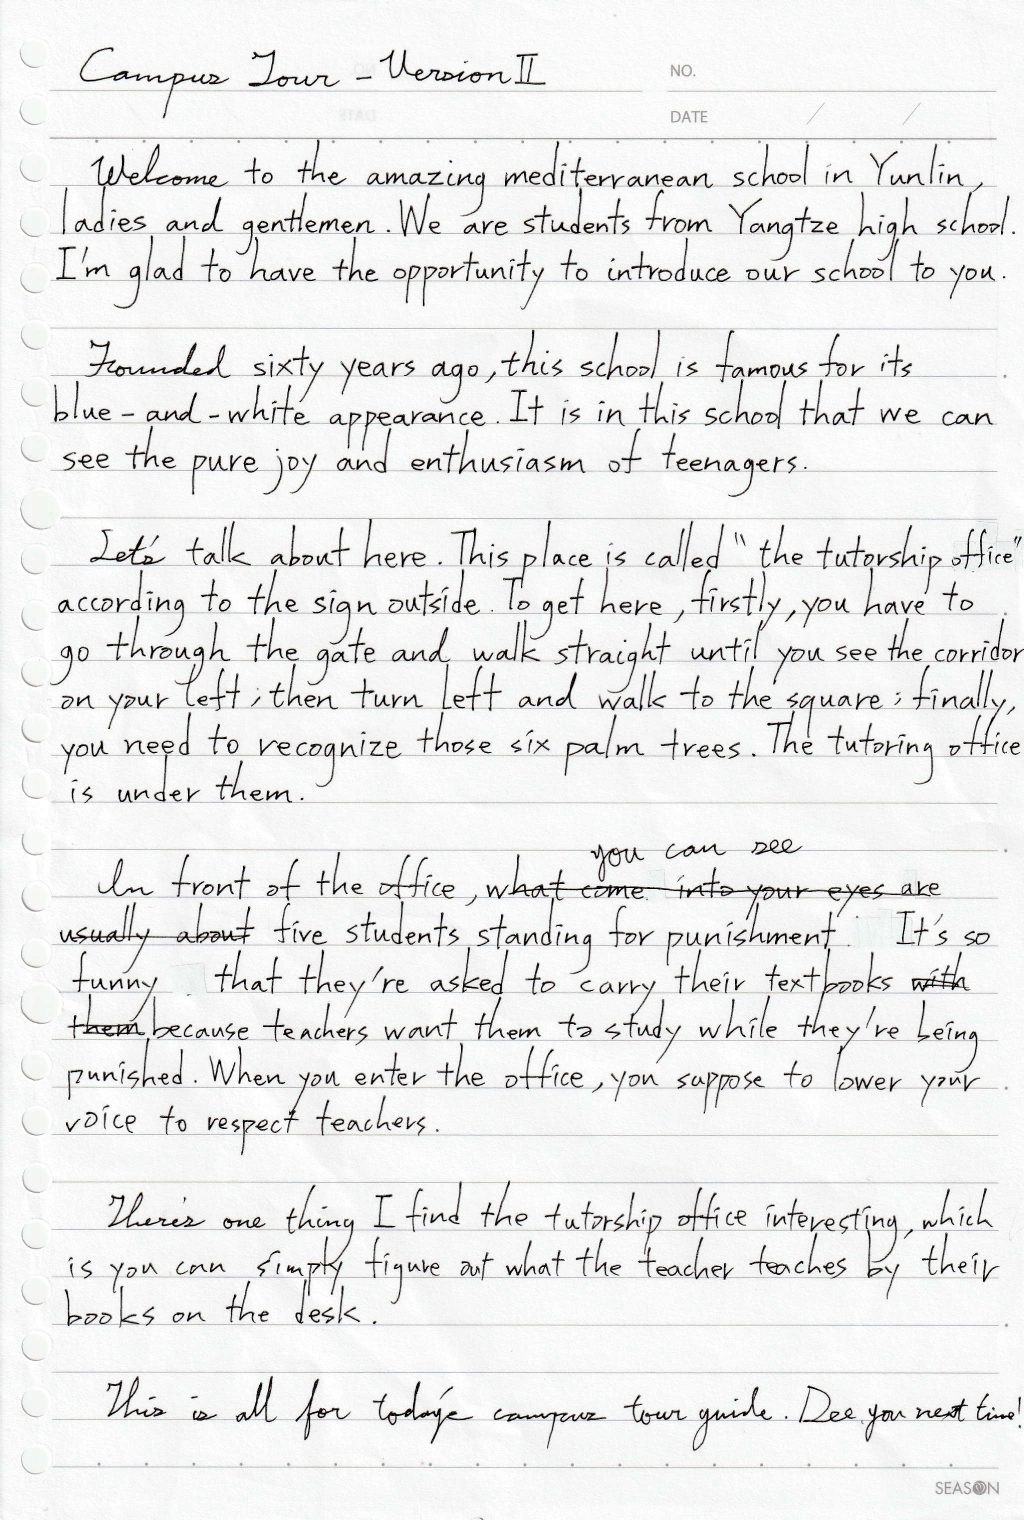 Campus Tour - Version II
NO.
DATE
Welcome to the amazing mediterranean school in Yunlin,
ladies and gentlemen. We are students from Yangtze high school.
I'm glad to have the opportunity to introduce our school to you.
Founded sixty years ago, this school is famous for its
blue-and-white appearance. It is in this school that we can
see the pure joy and enthusiasm of teenagers.
Let's talk about here. This place is called "the tutorship office"
according to the sign outside. To get here, firstly, you have to
go through the gate and walk straight until you see the corridor
on your left; then turn left and walk to the square; finally,
you need to recognize those six palm trees. The tutoring office
is under them.
you can see
In front of the office, what come into your eyes are
usually about five students standing for punishment. It's so
funny that they're asked to carry their textbooks with
them because teachers want them to study while they're being
punished. When you enter the office, you suppose to lower your
voice to respect teachers.
There's one thing I find the tutorship office interesting, which
is you can simply figure out what the teacher teaches by their
books on the desk.
This is all for today's campus tour guide. See you next time!
SEASON